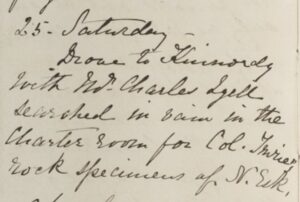 25 - Saturday -
Drove to Kinnordy
with Mr. Charles Lyell
searched in vain in the
Charter room for Col. Imrie's
rock specimens of N. Esk.